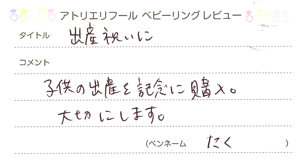 アトリエリフール ベビーリングレビュー
タイトル 出産祝いに
コメント
子供の出産を記念に購入。
大切にします。
(ペンネーム たく )